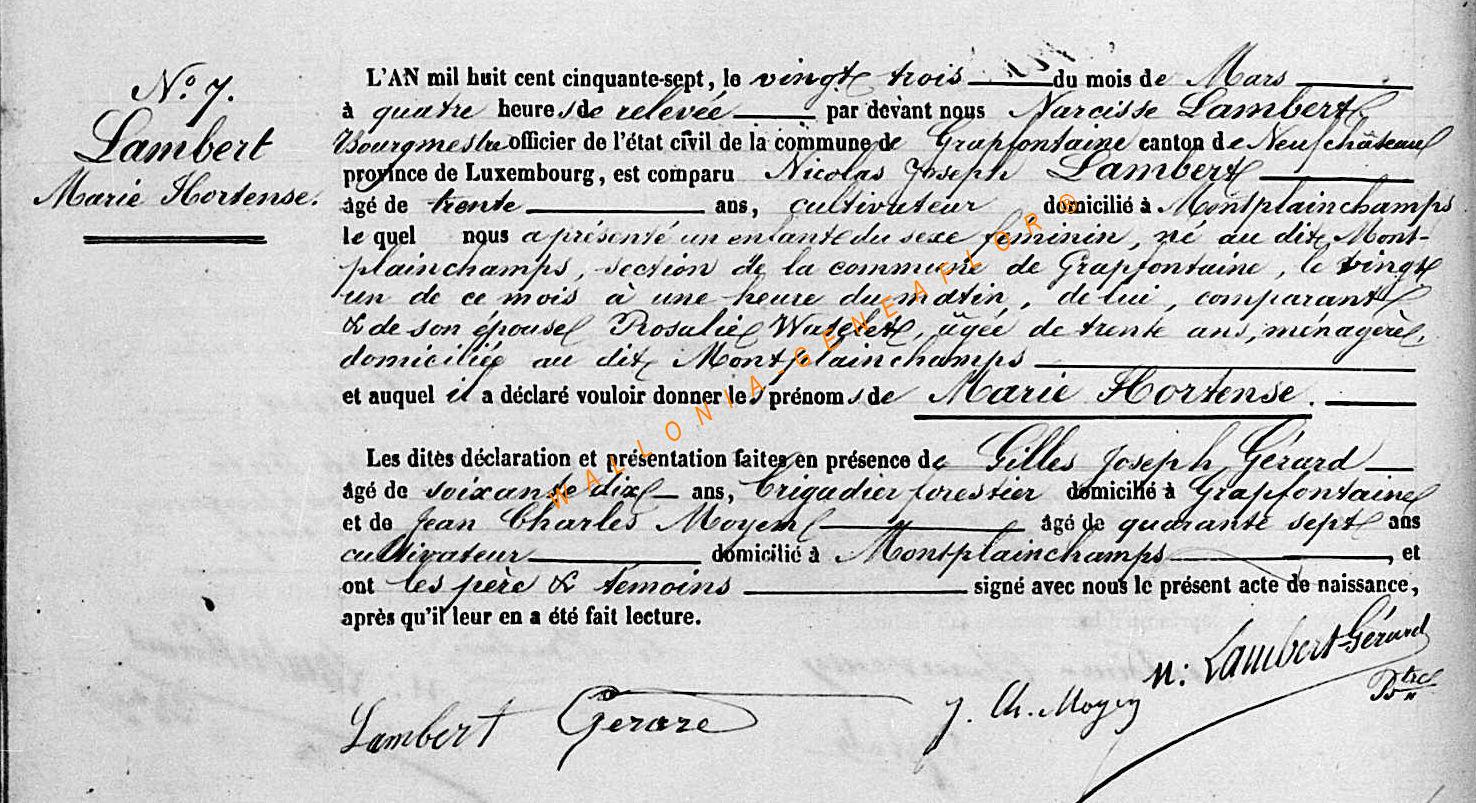 N.o 7.
Lambert
Marie Hortense.
L'AN mil huit cent cinquante-sept, le vingt trois du mois de Mars
à quatre heures de relevée par devant nous Narcisse Lambert
Bourgmestre officier de l'état civil de la commune de Grapfontaine canton de Neufchâteau
province de Luxembourg, est comparu Nicolas Joseph Lambert
âgé de trente ans, cultivateur domicilié à Montplainchamps
le quel nous a présenté un enfant du sexe féminin, né au dit Mont-
plainchamps, section de la commune de Grapfontaine, le vingt
un de ce mois à une heure du matin, de lui, comparant
& de son épouse Rosalie Watelet, âgée de trente ans, ménagère,
domiciliée au dit Montplainchamps
et auquel il a déclaré vouloir donner les prénoms de Marie Hortense.
Les dites déclaration et présentation faites en présence de Gilles Joseph Gérard
âgé de soixante dix ans, brigadier forestier domicilié à Grapfontaine
et de Jean Charles Moyen âgé de quarante sept ans
cultivateur domicilié à Montplainchamps, et
ont les père & témoins signé avec nous le présent acte de naissance,
après qu'il leur en a été fait lecture.
Lambert Gerare J. Ch. Moyen N: Lambert-Gérard
WALLONIA-GENEAFLOR®